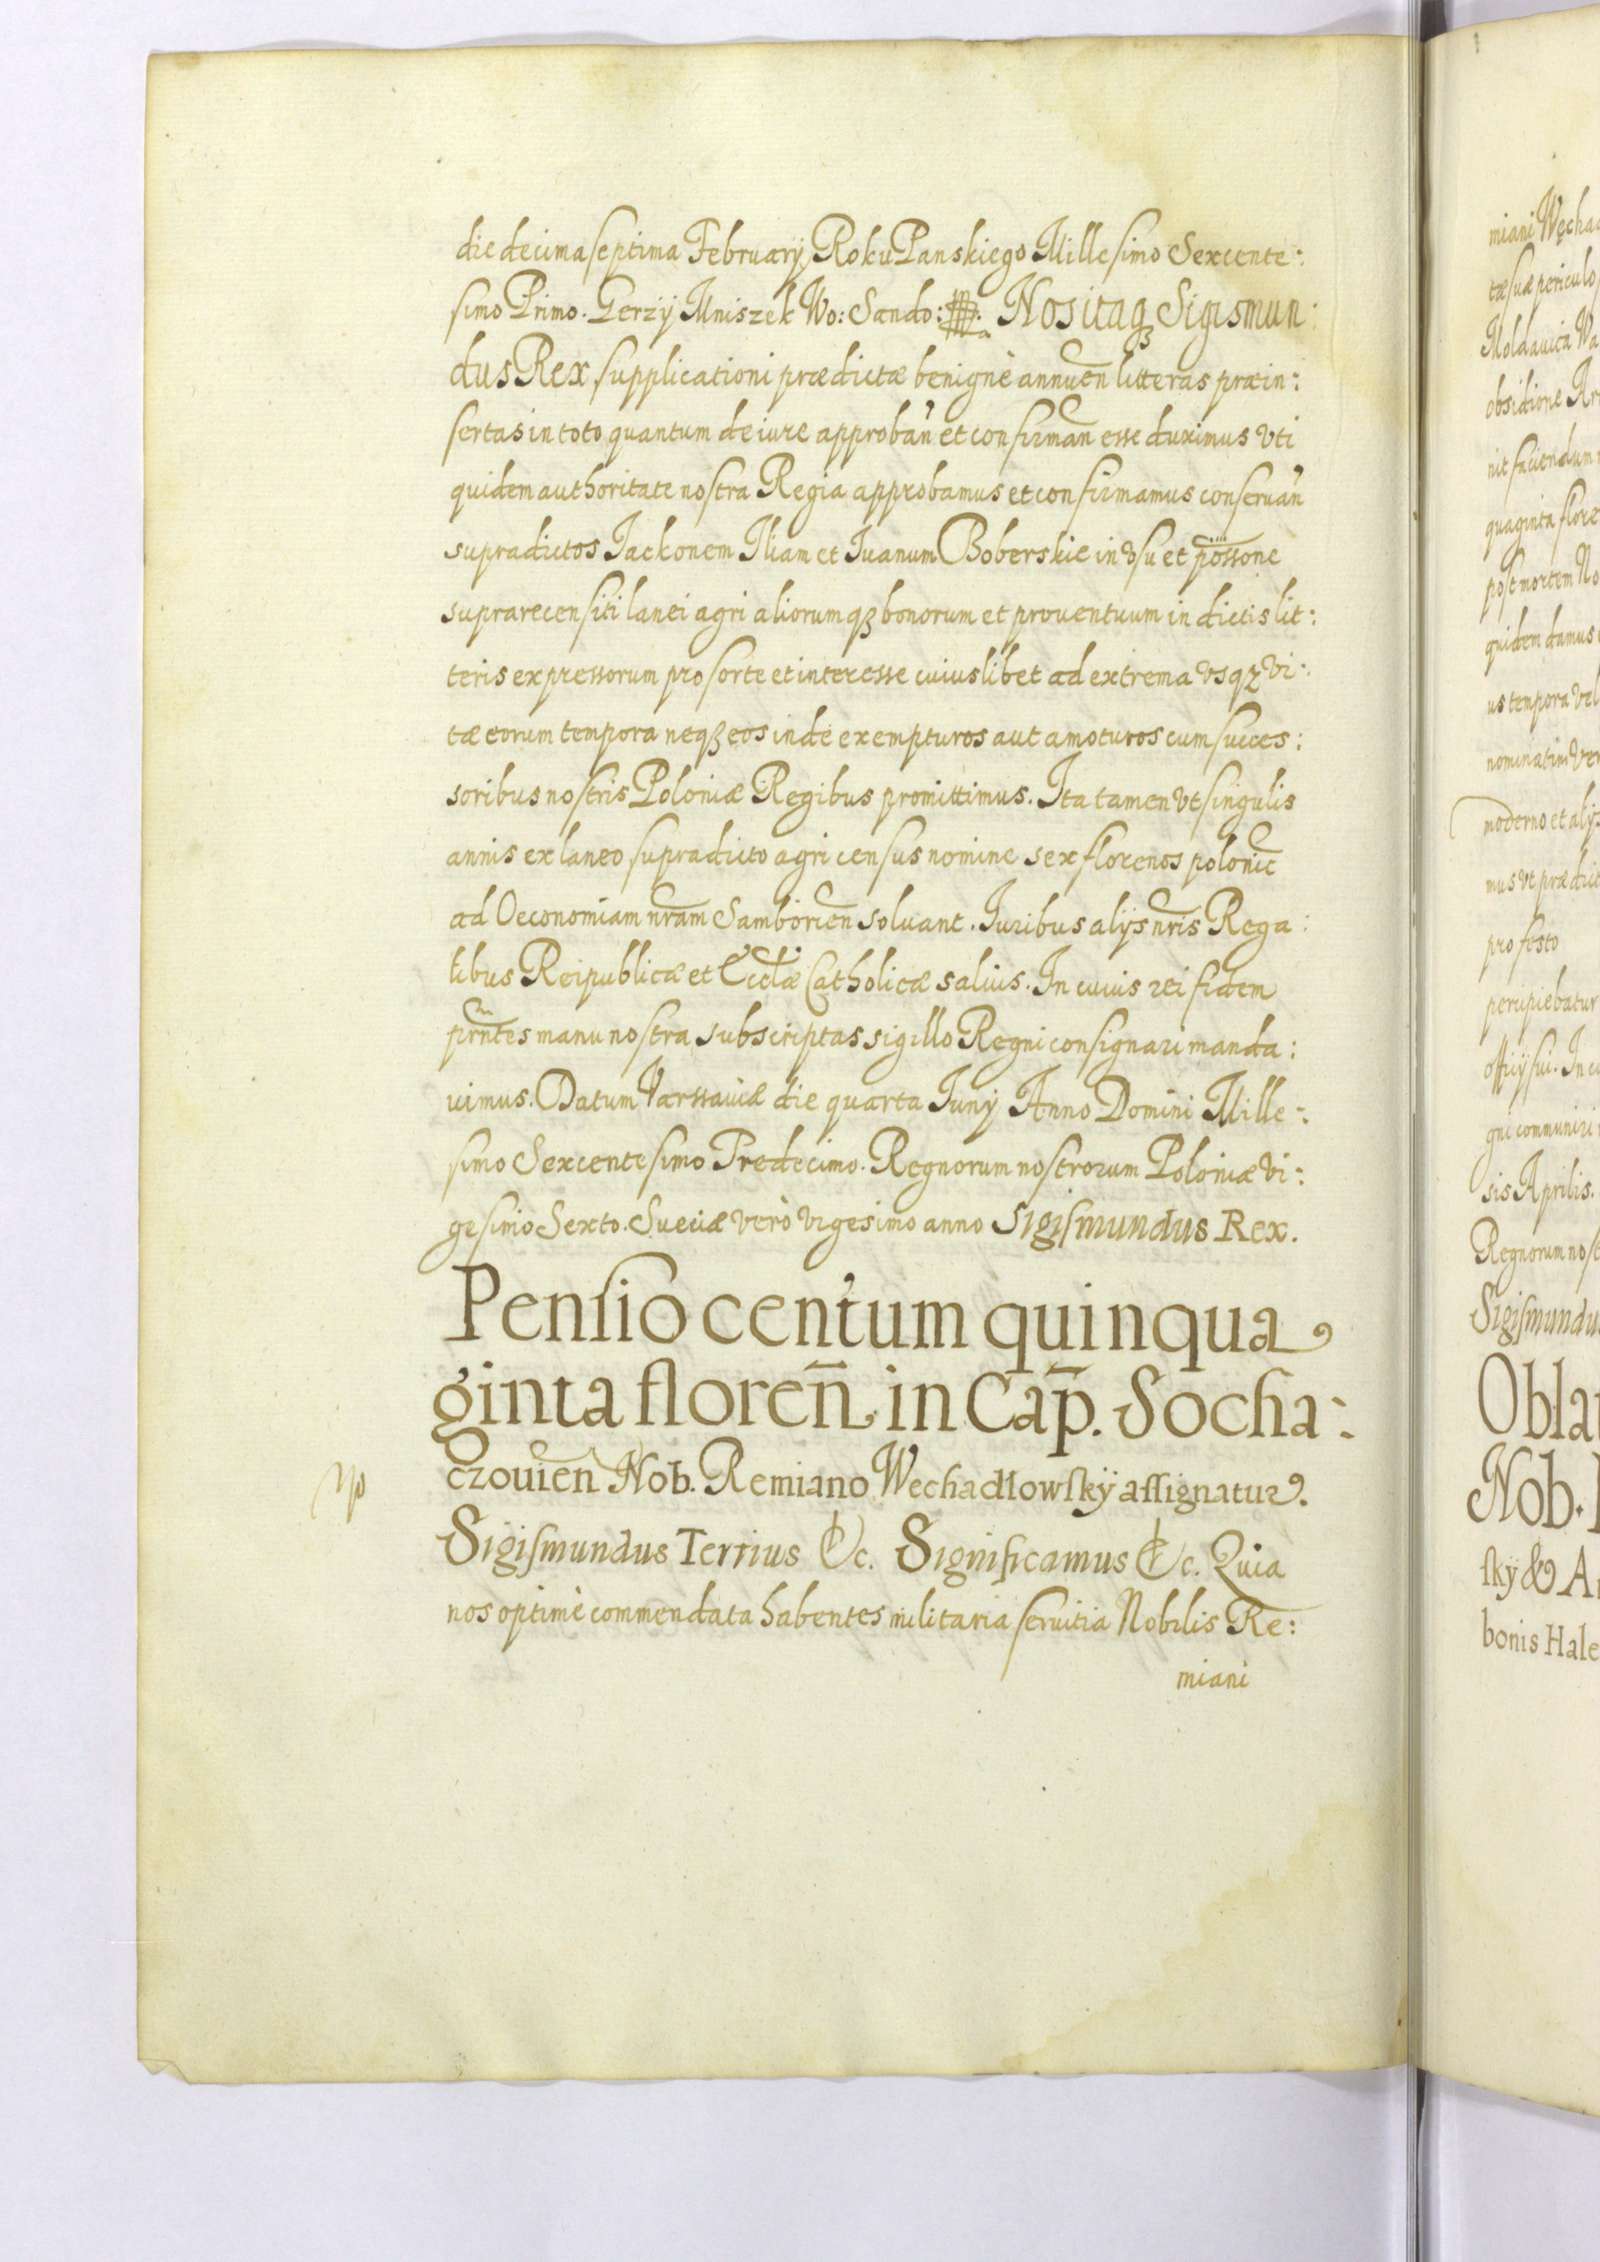 die decima septima Februarÿ Roku Panskiego Millesimo Sexcente:
simo Primo. Gerzÿ Mniszek Wo: Sando: Nos itaqꝫ Sigismun:
dus Rex supplicationi prædictæ benignè annuen̄ litteras præin:
sertas in toto quantum de iure approban̄ et confirman̄ esse duximus vti
quidem authoritate nostra Regia approbamus et confirmamus conseruan̄
supradictos Jackonem Iliam et Iuanum Boberskie in vsu et possone
suprarecensiti lanei agri aliorumqꝫ bonorum et prouentuum in dictis lit:
teris expressorum pro sorte et interesse cuiuslibet ad extrema vsqꝫ vi:
tæ eorum tempora neqꝫ eos inde exempturos aut amoturos cum succes:
soribus nostris Poloniæ Regibus promittimus. Ita tamen vt singulis
annis ex laneo supradicto agri census nomine sex florenos polonic̄
ad Oeconomiam nr̄am Samborien̄ soluant. Iuribus alijs nr̄is Rega:
libus Reipublicæ et Eccl̄æ Catholicæ saluis. In cuius rei fidem
prn̄tes manu nostra subscriptas sigillo Regni consignari manda:
uimus. Datum Varssauiæ die quarta Iunÿ Anno Domini Mille:
simo Sexcentesimo Tredecimo. Regnorum nostrorum Poloniæ Vi:
gesimo Sexto. Sueciæ verò vigesimo anno Sigismundus Rex.
Pensio centum quinqua
ginta floren̄ in Cap̄. Socha:
czouien̄ Nob. Remiano Wechadłowskÿ assignatur.
Sigismundus Tertius &c. Significamus &c. Quia
nos optimè commendata habentes militaria seruitia Nobilis Re:
miani
miani Węcha
tæ suæ periculo
Moldauica Wa
obsidione Ar
nit faciendum
quaginta flore
post mortem No
quidem damus
us tempora vel
nominatim ver
moderno et alÿs
mus vt prædict
pro festo
percipiebatur
officÿ sui. In cu
gni communiri
sis Aprilis.
Regnorum nost
Sigismundu
Oblat
Nob.
skÿ & A
bonis Hale